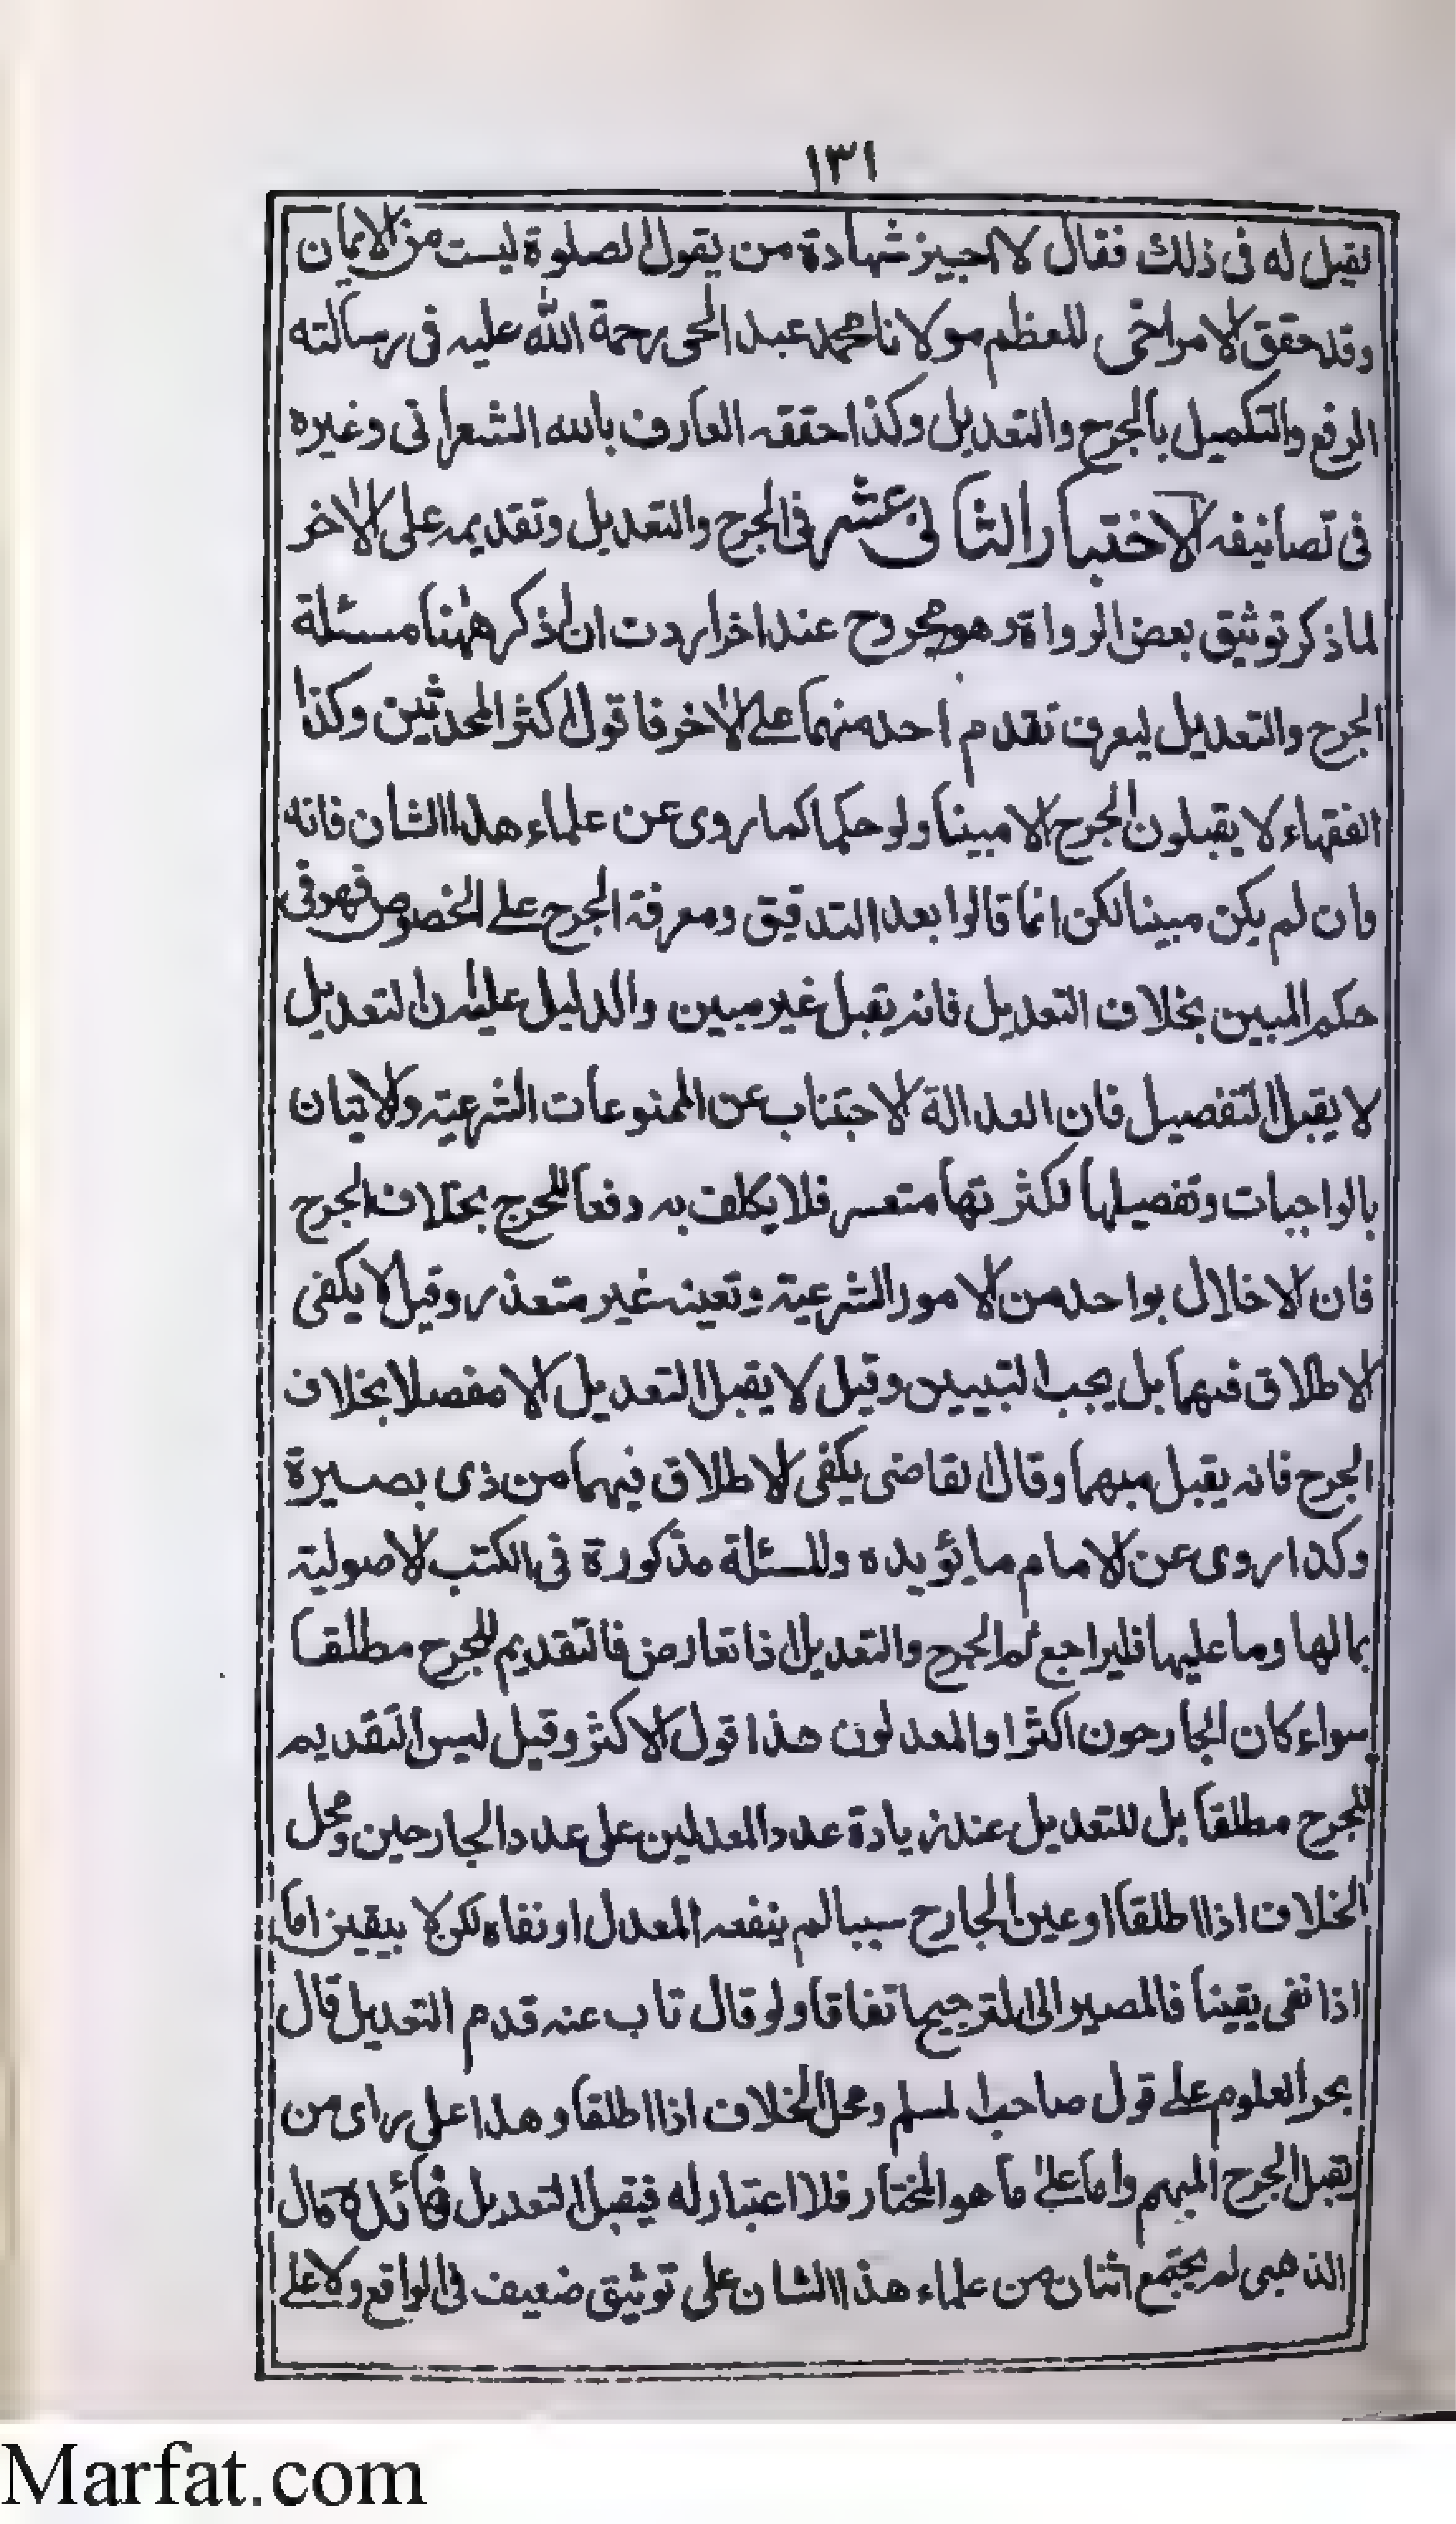 ١٣١
فقيل له فى ذلك فقال لا اجيز شهادة من يقول الصلوة ليست من الايمان
وقد حقق الامر اخى المعظم مولانا محمد عبد الحى رحمة الله عليه فى رسالته
الرفع والتكميل بالجرح والتعديل وكذا حققه العارف بالله الشعرانى وغيره
فى تصانيفه الاختبار الثانى عشر فى الجرح والتعديل وتقديمه على الاخر
لما ذكر توثيق بعض الرواة وهو مجروح عند اخر اردت ان اذكر ههنا مسئلة
الجرح والتعديل ليعرف تقدم احد منهما على الاخر فاقول اكثر المحدثين وكذا
الفقهاء لا يقبلون الجرح الا مبينا ولو حكما كما روى عن علماء هذا الشان فانه
وان لم يكن مبينا لكن انما قالوا بعد التدقيق ومعرفة الجرح على الخصوص فهو فى
حكم المبين بخلاف التعديل فانه يقبل غير مبين والدليل عليه ان التعديل
لا يقبل التفصيل فان العدالة الاجتناب عن الممنوعات الشرعية والاتيان
بالواجبات وتفصيلها لكثرتها متعسر فلا يكلف به دفعا للحرج بخلاف الجرح
فان الاخلال بواحد من الامور الشرعية وتعينه غير متعذر وقيل لا يكفى
الاطلاق فيهما بل يجب التبيين وقيل لا يقبل التعديل الا مفصلا بخلاف
الجرح فانه يقبل مبهما وقال القاضى يكفى الاطلاق فيهما من ذى بصيرة
وكذا روى عن الامام ما يؤيده والمسئلة مذكورة فى الكتب الاصولية
بمالها وما عليها فليراجع ثم الجرح والتعديل اذا تعارض فالتقديم للجرح مطلقا
سواء كان الجارحون اكثر او المعدلون هذا قول الاكثر وقيل ليس التقديم
للجرح مطلقا بل للتعديل عند زيادة عدد المعدلين على عدد الجارحين ومحل
الخلاف اذا اطلقا او عين الجارح سببا لم ينفعه المعدل او نفاه لكن لا بيقين اما
اذا نفى يقينا فالمصير الى الترجيح اتفاقا ولو قال تاب عنه قدم التعديل قال
بحر العلوم على قول صاحب المسلم ومحل الخلاف اذا اطلقا وهذا على راى من
يقبل الجرح المبهم واما على ما هو المختار فلا اعتبار له فيقبل التعديل فائدة قال
الذهبى لم يجتمع اثنان من علماء هذا الشان على توثيق ضعيف فى الواقع ولا على
Marfat.com